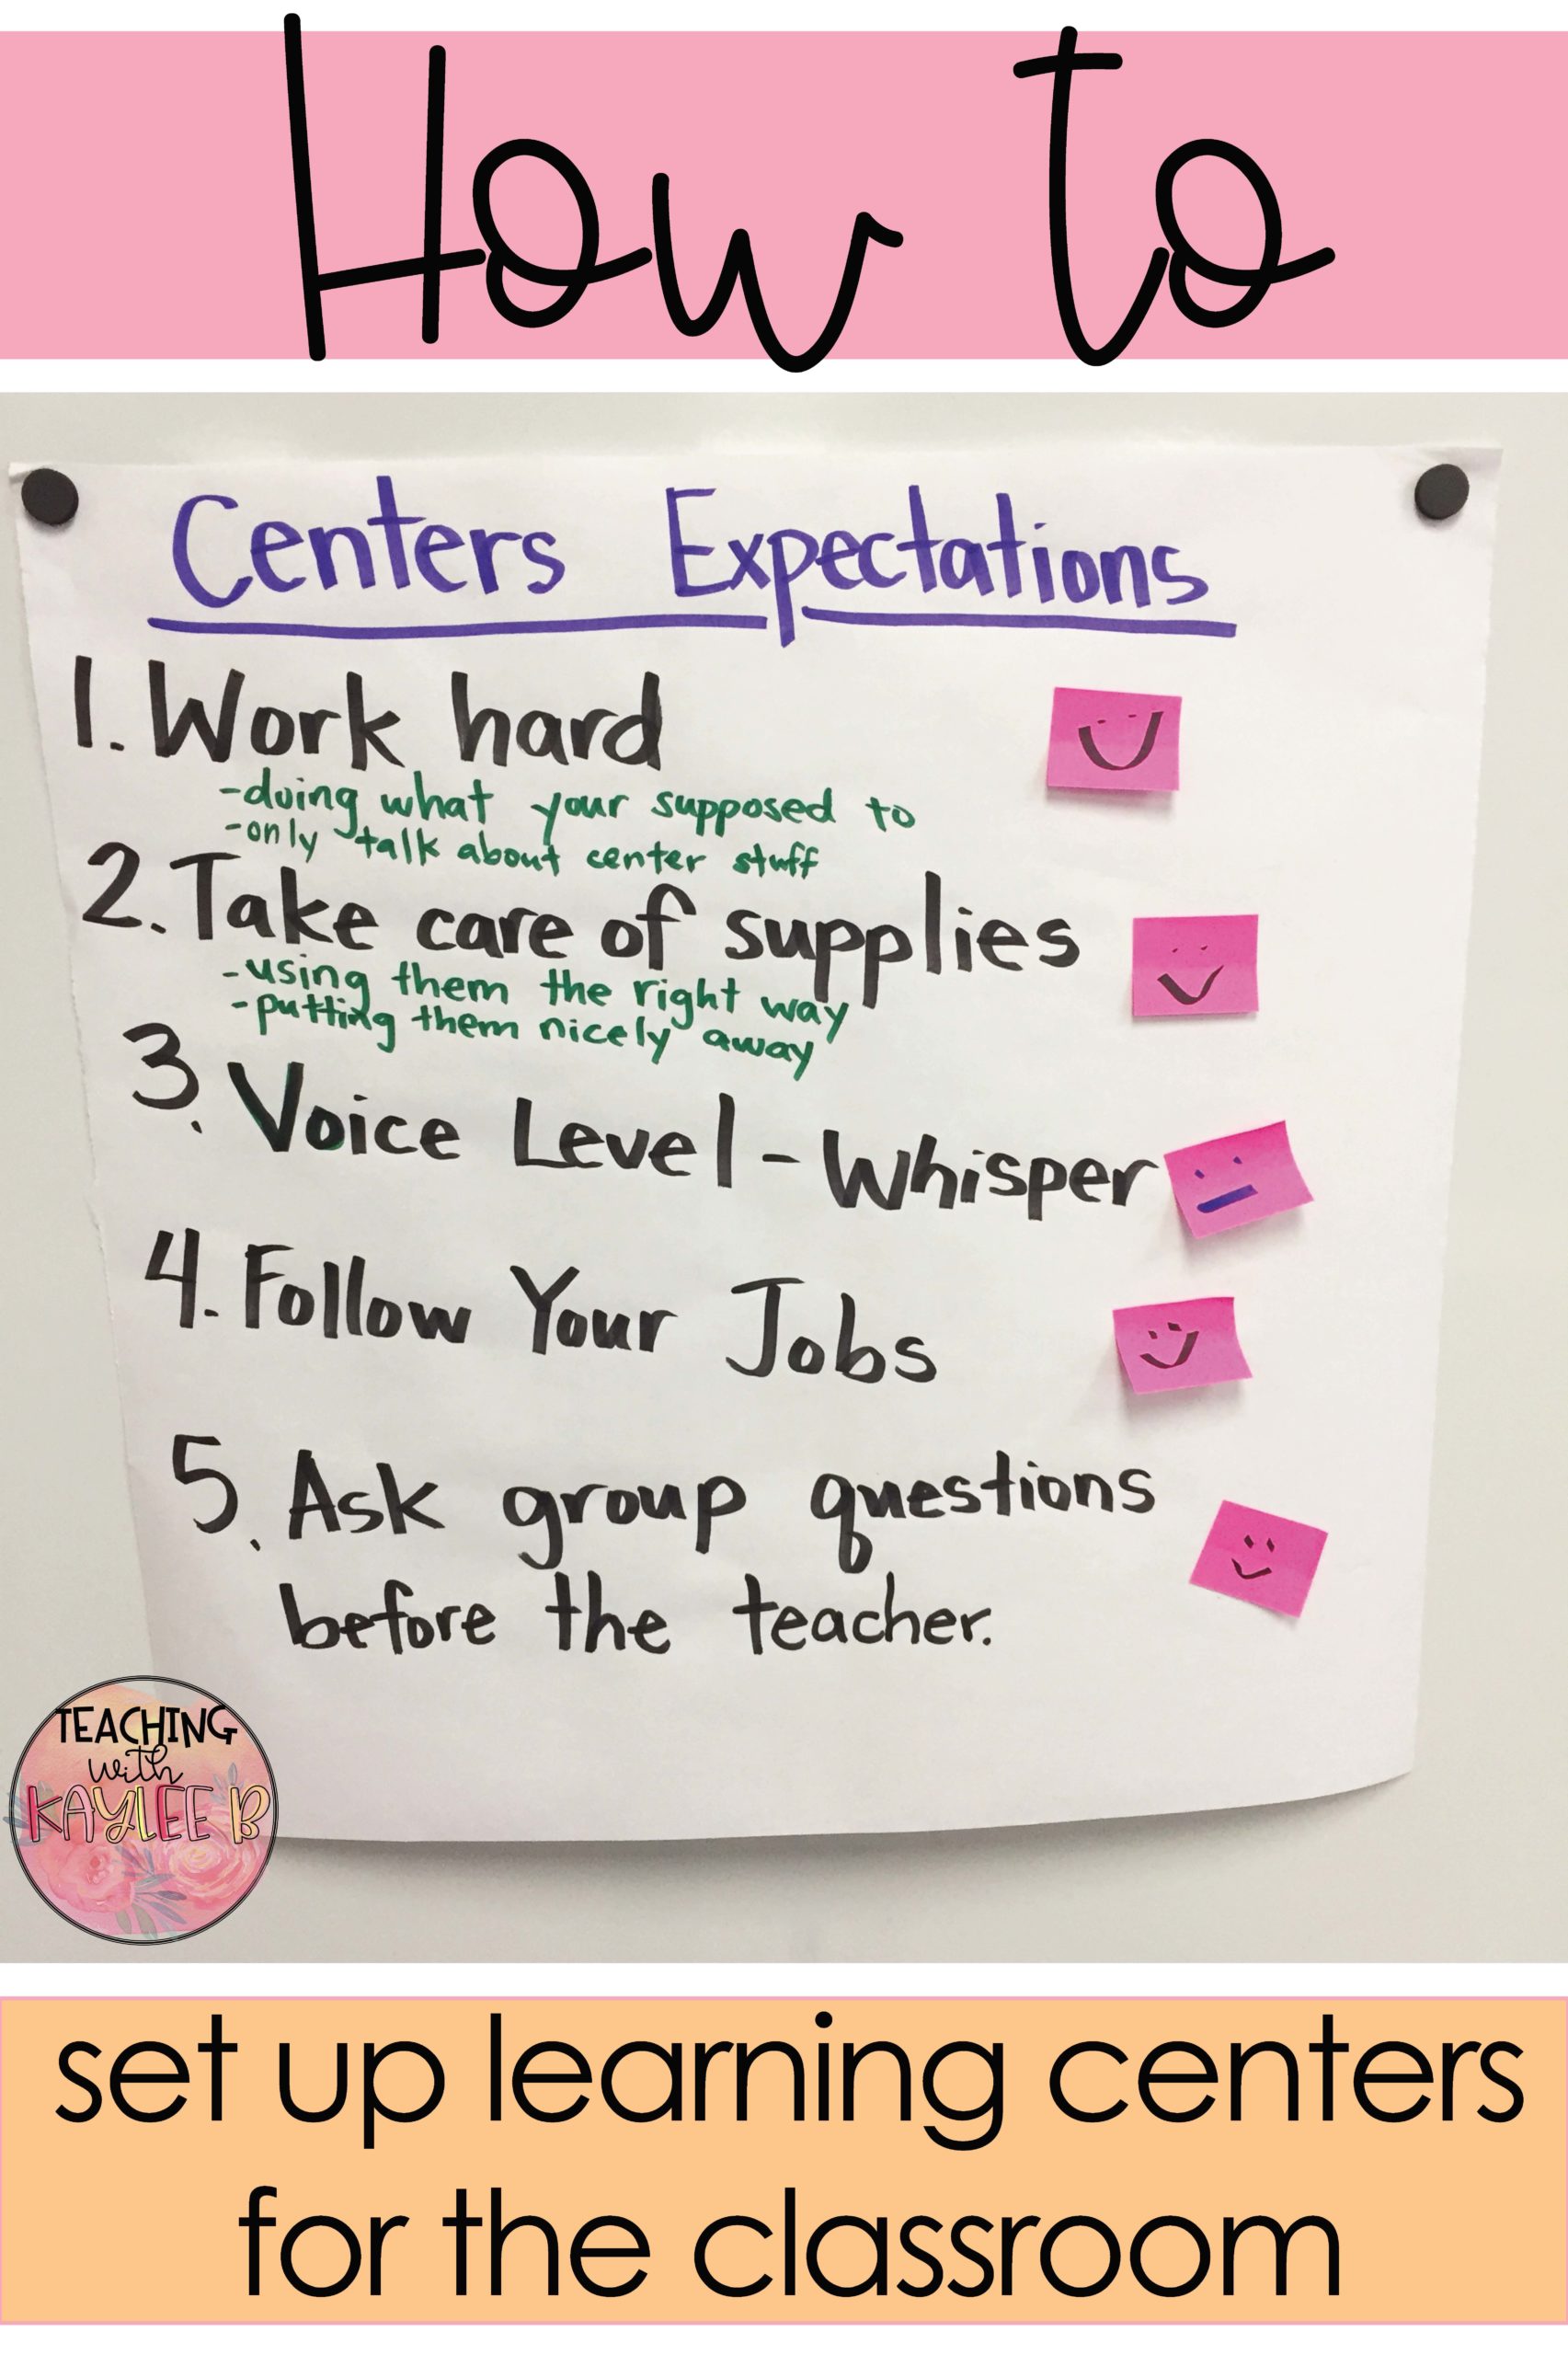 How to
Centers Expectations
1. Work hard
-doing what your supposed to
-only talk about center stuff
2. Take care of supplies
-using them the right way
-putting them nicely away
3. Voice Level - Whisper
4. Follow Your Jobs
5. Ask group questions
before the teacher.
TEACHING
with
KAYLEE B
set up learning centers
for the classroom